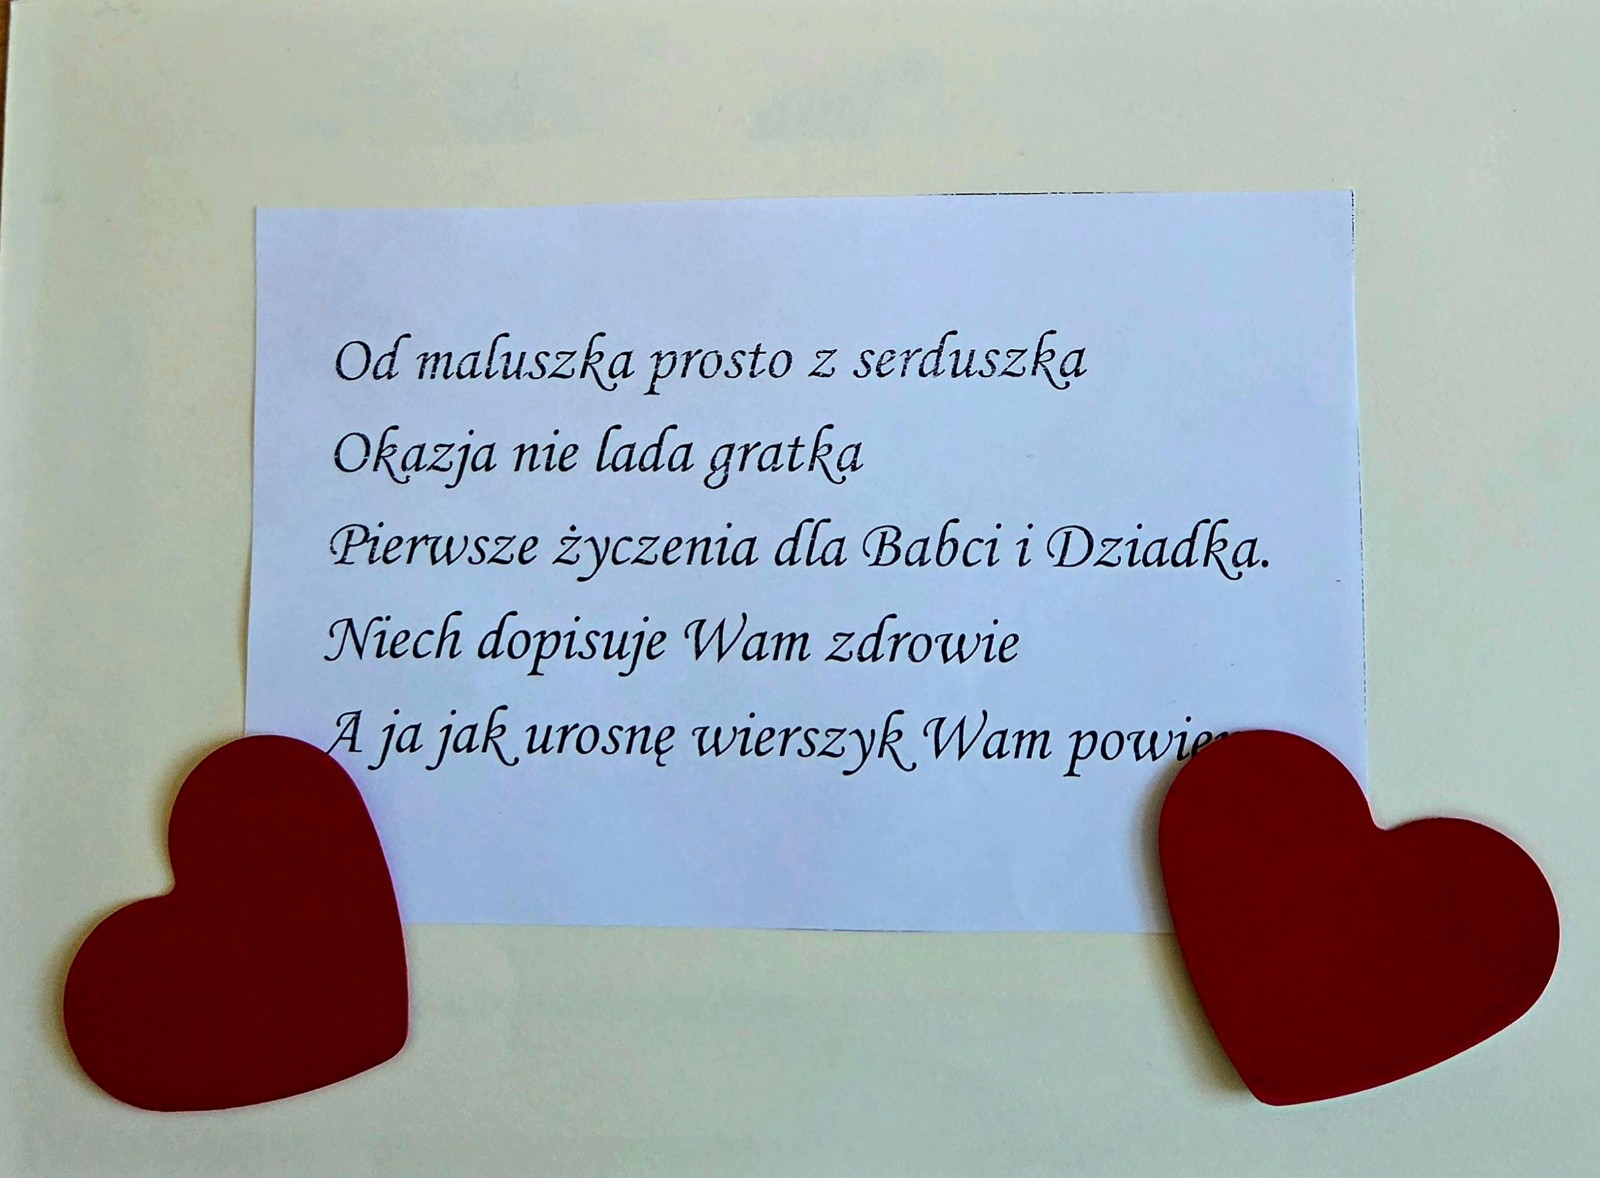 Od maluszka prosto z serduszka
Okazja nie lada gratka
Pierwsze życzenia dla Babci i Dziadka.
Niech dopisuje Wam zdrowie
A ja jak urosnę wierszyk Wam